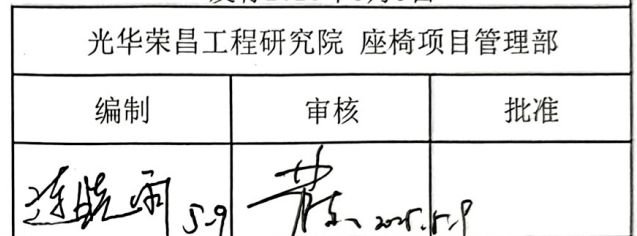 光华荣昌工程研究院 座椅项目管理部
编制 审核 批准
连晓雨 5-9 2025.5-9